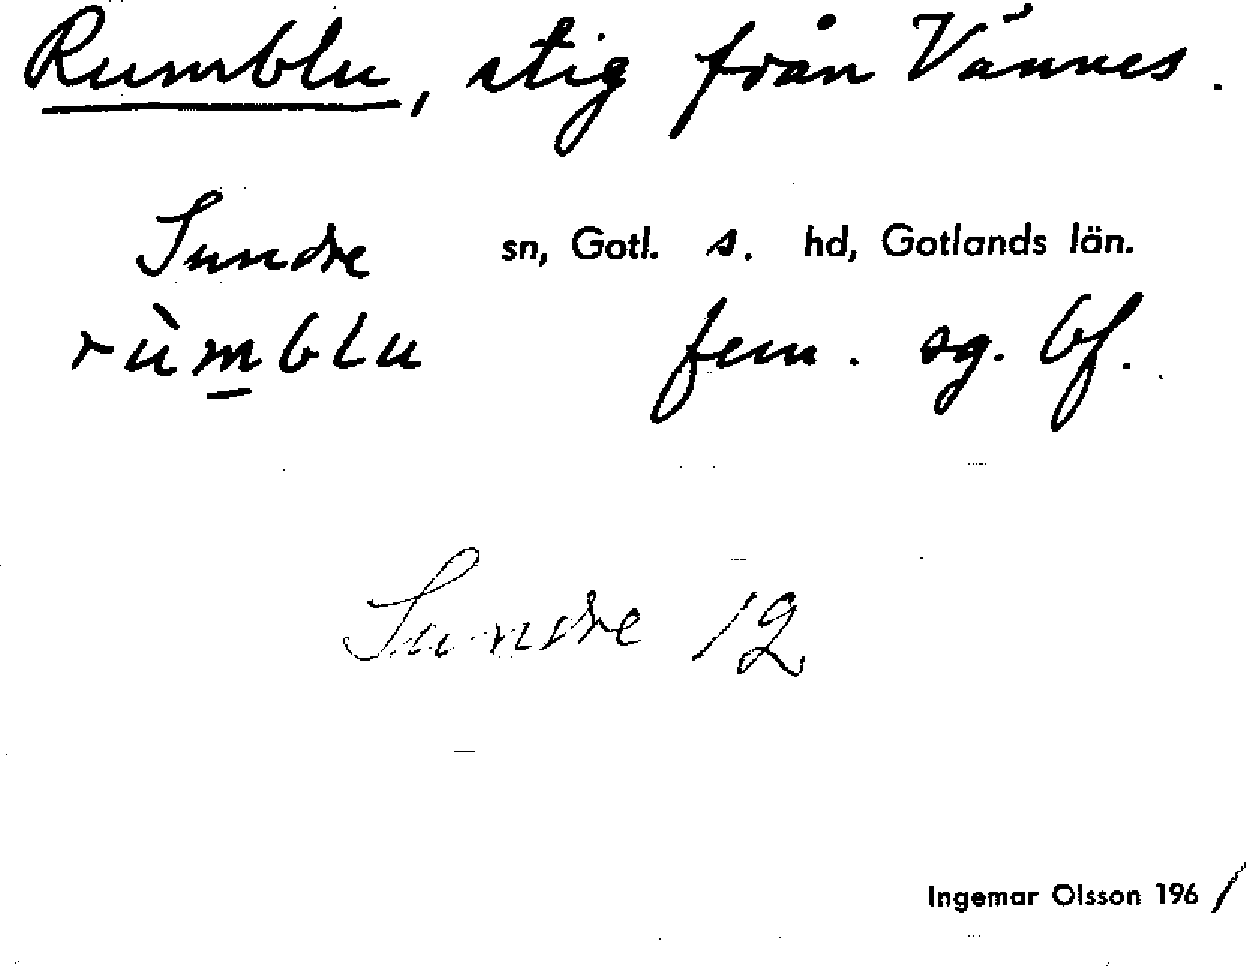 Rumblu, stig från Vännes.
Sundre sn, Gotl. s. hd, Gotlands län.
rùm̲blu fem. sg. bf.
Sundre 12
Ingemar Olsson 1961